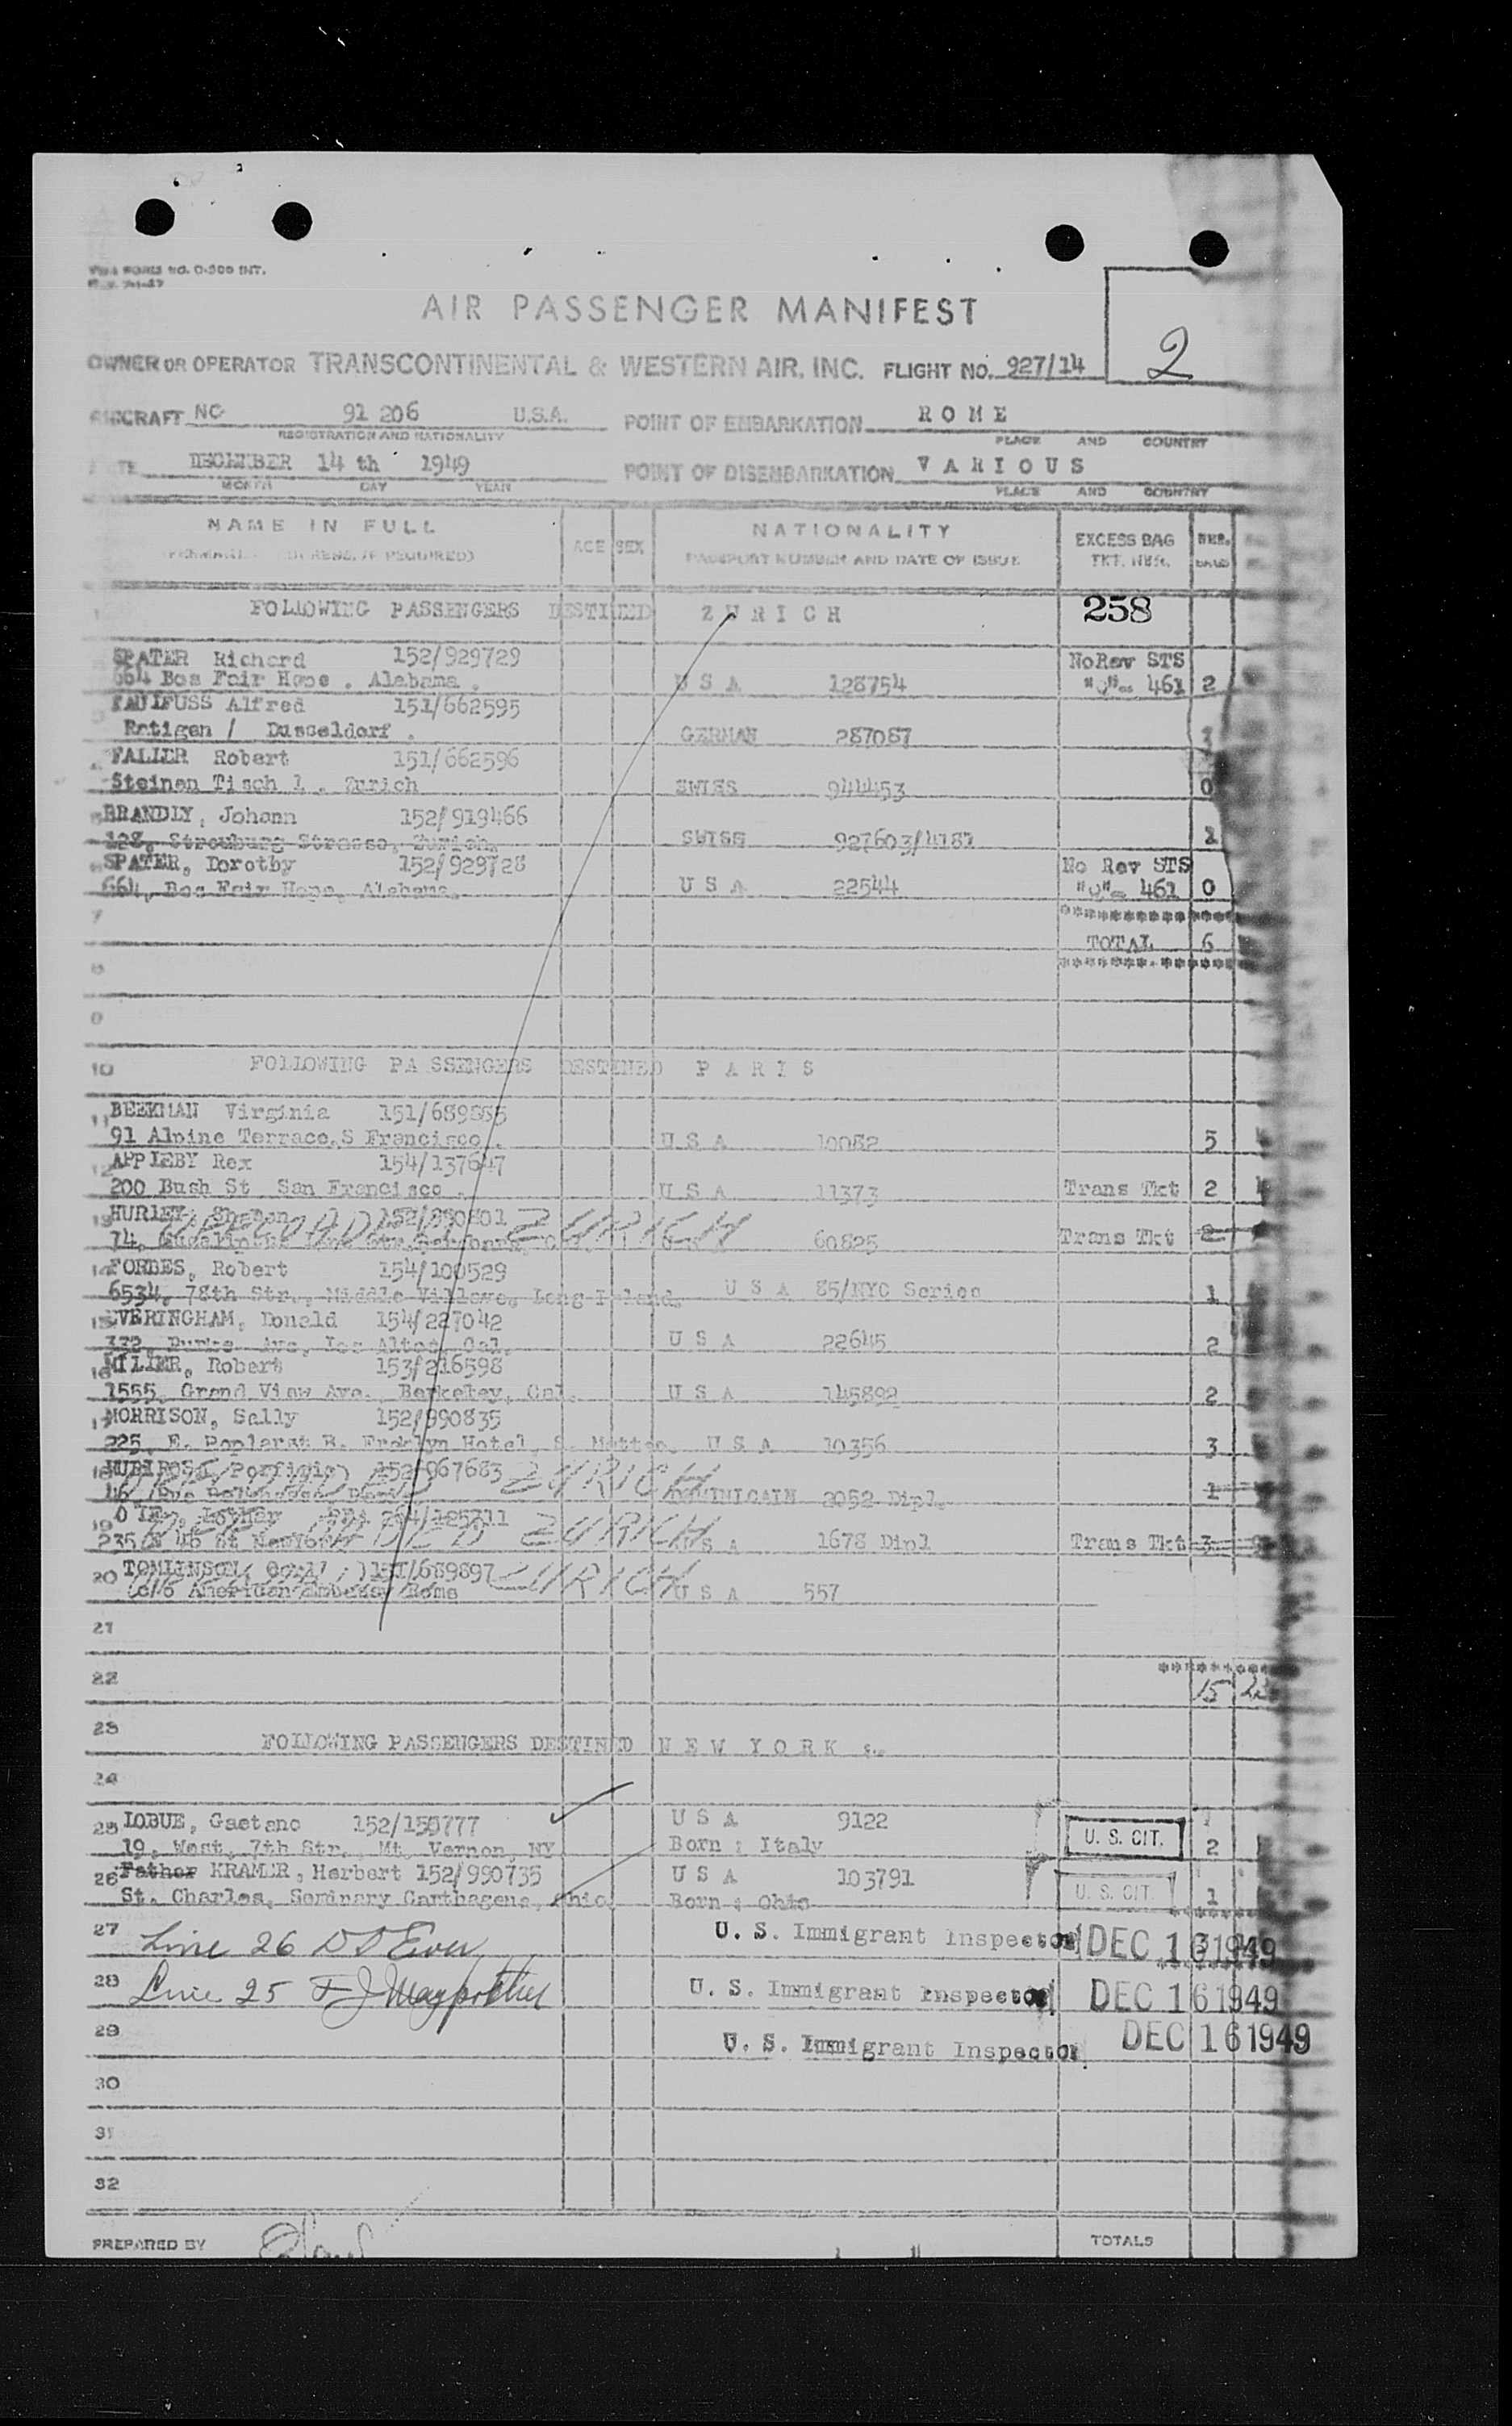 TWA FORM NO. O-300 INT.
AIR PASSENGER MANIFEST
2
OWNER OR OPERATOR TRANSCONTINENTAL & WESTERN AIR, INC. FLIGHT NO. 927/14
AIRCRAFT NC 91 206 U.S.A. POINT OF EMBARKATION ROME
REGISTRATION AND NATIONALITY PLACE AND COUNTRY
DATE DECEMBER 14 th 1949 POINT OF DISEMBARKATION VARIOUS
MONTH DAY YEAR PLACE AND COUNTRY
NAME IN FULL AGE SEX NATIONALITY EXCESS BAG
(PERMANENT ADDRESS, IF REQUIRED) PASSPORT NUMBER AND DATE OF ISSUE TKT. NBR.
FOLLOWING PASSENGERS DESTINED ZURICH 258
SPATER Richard 152/929729 NoRev STS
664 Bos Fair Hope . Alabama . U S A 128754 "O"- 461 2
Alfred 151/662595
Ratigen / Dusseldorf . GERMAN 287087
FALLER Robert 151/662596
Steinen Tisch 1 . Zurich SWISS 944453 0
BRANDLY, Johann 152/919466
Zurich. SWISS 927603/4181 1
SPATER, Dorothy 152/929728 No Rev STS
664, Bos Fair Hope, Alabama. U S A 22544 "O"- 461 0
7 **********
TOTAL 6
8 **********
9
10 FOLLOWING PASSENGERS DESTINED PARIS
11 BEEKMAN Virginia 151/689885
91 Alpine Terrace, S Francisco . U S A 10082 5
12 APPLEBY Rex 154/137647
200 Bush St San Francisco . U S A 11373 Trans Tkt 2
13 HURLEY, 152/990801 ZURICH
74, 60825 Trans Tkt 2
14 FORBES, Robert 154/100529
6534, 78th Str., Middle Village, Long Island. U S A 85/NYC Series 1
15 EVERINGHAM, Donald 154/227042
Ave, Los Altos, Cal. U S A 22645 2
16 MILLER, Robert 153/216598
1555, Grand View Ave., Berkeley, Cal. U S A 145892 2
17 MORRISON, Sally 152/990835
225, E. Poplarst B. Franklyn Hotel, S. Matteo. U S A 10356 3
18 RUBIROSA Porfirio 152-967683 ZURICH
DOMINICAIN 2052 Dipl. 1
19 ZURICH
235 46 St NewYork U S A 1678 Dipl Trans Tkt 3
20 TOMLINSON 151/689897 ZURICH
c/o American Embassy Rome U S A 557
21
22 **********
15
23 FOLLOWING PASSENGERS DESTINED NEW YORK :.
24
25 LOBUE, Gaetano 152/150777 U S A 9122
19, West, 7th Str., Mt. Vernon, NY Born : Italy U. S. CIT. 2
26 Father KRAMER, Herbert 152/990735 U S A 103791
St. Charles, Seminary Carthagena, Ohio Born : Ohio U. S. CIT. 1
27 Line 26 U. S. Immigrant Inspector DEC 16 1949
28 Line 25 U. S. Immigrant Inspector DEC 16 1949
29 U. S. Immigrant Inspector DEC 16 1949
30
31
32
PREPARED BY TOTALS